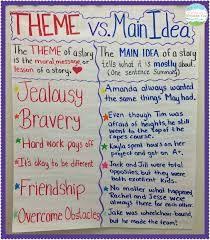 THEME vs. Main Idea
The THEME of a story
is the moral, message or
lesson of a story.
Jealousy
Bravery
Hard work pays off
It's okay to be different
Friendship
Overcome Obstacles
The MAIN IDEA of a story
tells what it is mostly about.
(One sentence Summary)
Amanda always wanted
the same things May had.
Even though Tim was
afraid of heights, he still
went to the top of the
ropes course.
Kayla spent hours on her
project and got an A+.
Jack and Jill were total
opposites, but they were
both excellent kids.
No matter what happened
Rachel and Jesse were
always there for each other.
Jake was wheelchair-bound,
but he made the team!